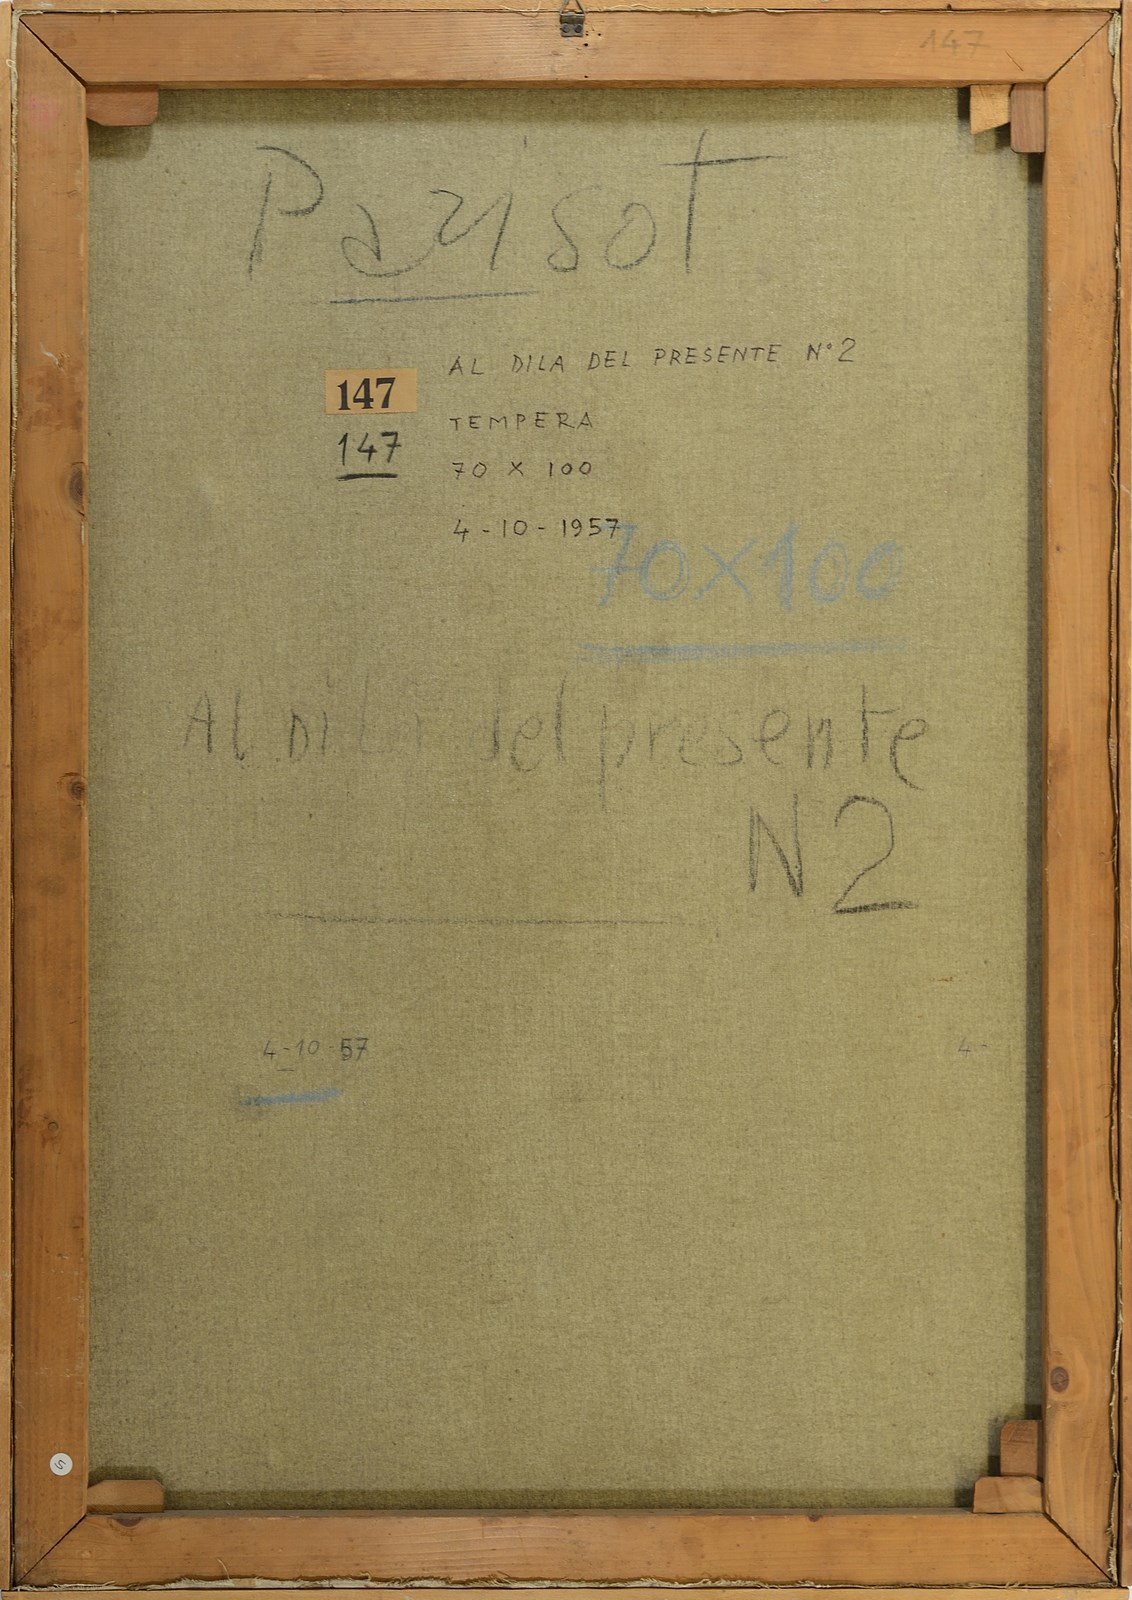 147
Parisot
AL DILA DEL PRESENTE N° 2
147
TEMPERA
147
70 X 100
4-10-1957
70x100
Al DiLà del presente
N 2
4-10-57
4-
S